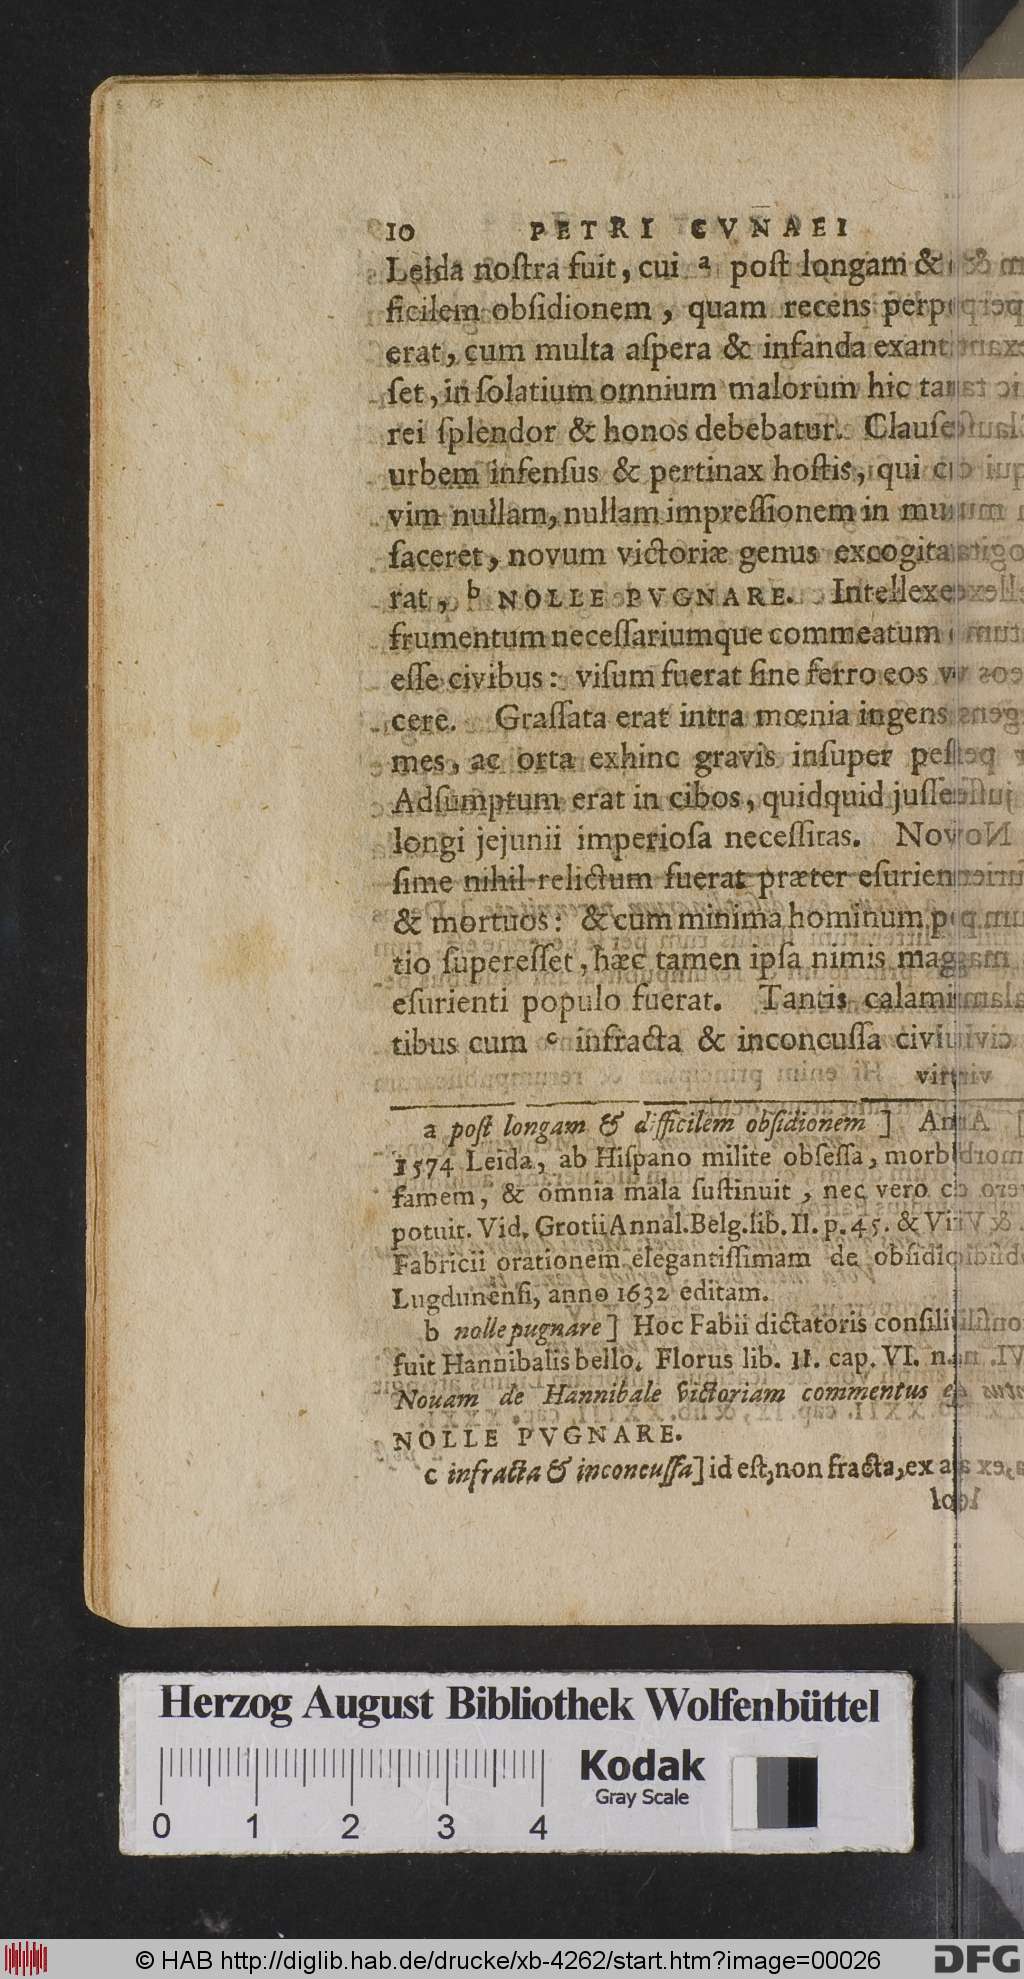 10 PETRI CVNAEI
Leida noſtra fuit, cui a poſt longam &
ficilem obſidionem, quam recens perp
erat, cum multa aſpera & infanda exant
ſet, in ſolatium omnium malorum hic tan
rei ſplendor & honos debebatur. Clauſe
urbem infenſus & pertinax hoſtis, qui c
vim nullam, nullam impreſſionem in mu
faceret, novum victoriæ genus excogita
rat, b NOLLE PVGNARE. Intellexe
frumentum neceſſariumque commeatum
eſſe civibus: viſum fuerat ſine ferro eos v
cere. Graſſata erat intra mœnia ingens
mes, ac orta exhinc gravis inſuper peſ
Adſumptum erat in cibos, quidquid juſſe
longi jejunii imperioſa neceſſitas. Nov
ſime nihil relictum fuerat præter eſurien
& mortuos: & cum minima hominum p
tio ſupereſſet, hæc tamen ipſa nimis mag
eſurienti populo fuerat. Tantis calami
tibus cum c infracta & inconcuſſa civiu
virt
a poſt longam & difficilem obſidionem ] An
1574 Leida, ab Hiſpano milite obſeſſa, morb
famem, & omnia mala ſuſtinuit, nec vero c
potuit. Vid. Grotii Annal. Belg. lib. II. p. 45. & Vi
Fabricii orationem elegantiſſimam de obſidi
Lugdunenſi, anno 1632 editam.
b nolle pugnare ] Hoc Fabii dictatoris conſili
fuit Hannibalis bello. Florus lib. II. cap. VI. n.
Nouam de Hannibale victoriam commentus e
NOLLE PVGNARE.
c infracta & inconcuſſa ] id eſt, non fracta, ex a
lo
Herzog August Bibliothek Wolfenbüttel
Kodak
Gray Scale
0 1 2 3 4
© HAB http://diglib.hab.de/drucke/xb-4262/start.htm?image=00026
DFG